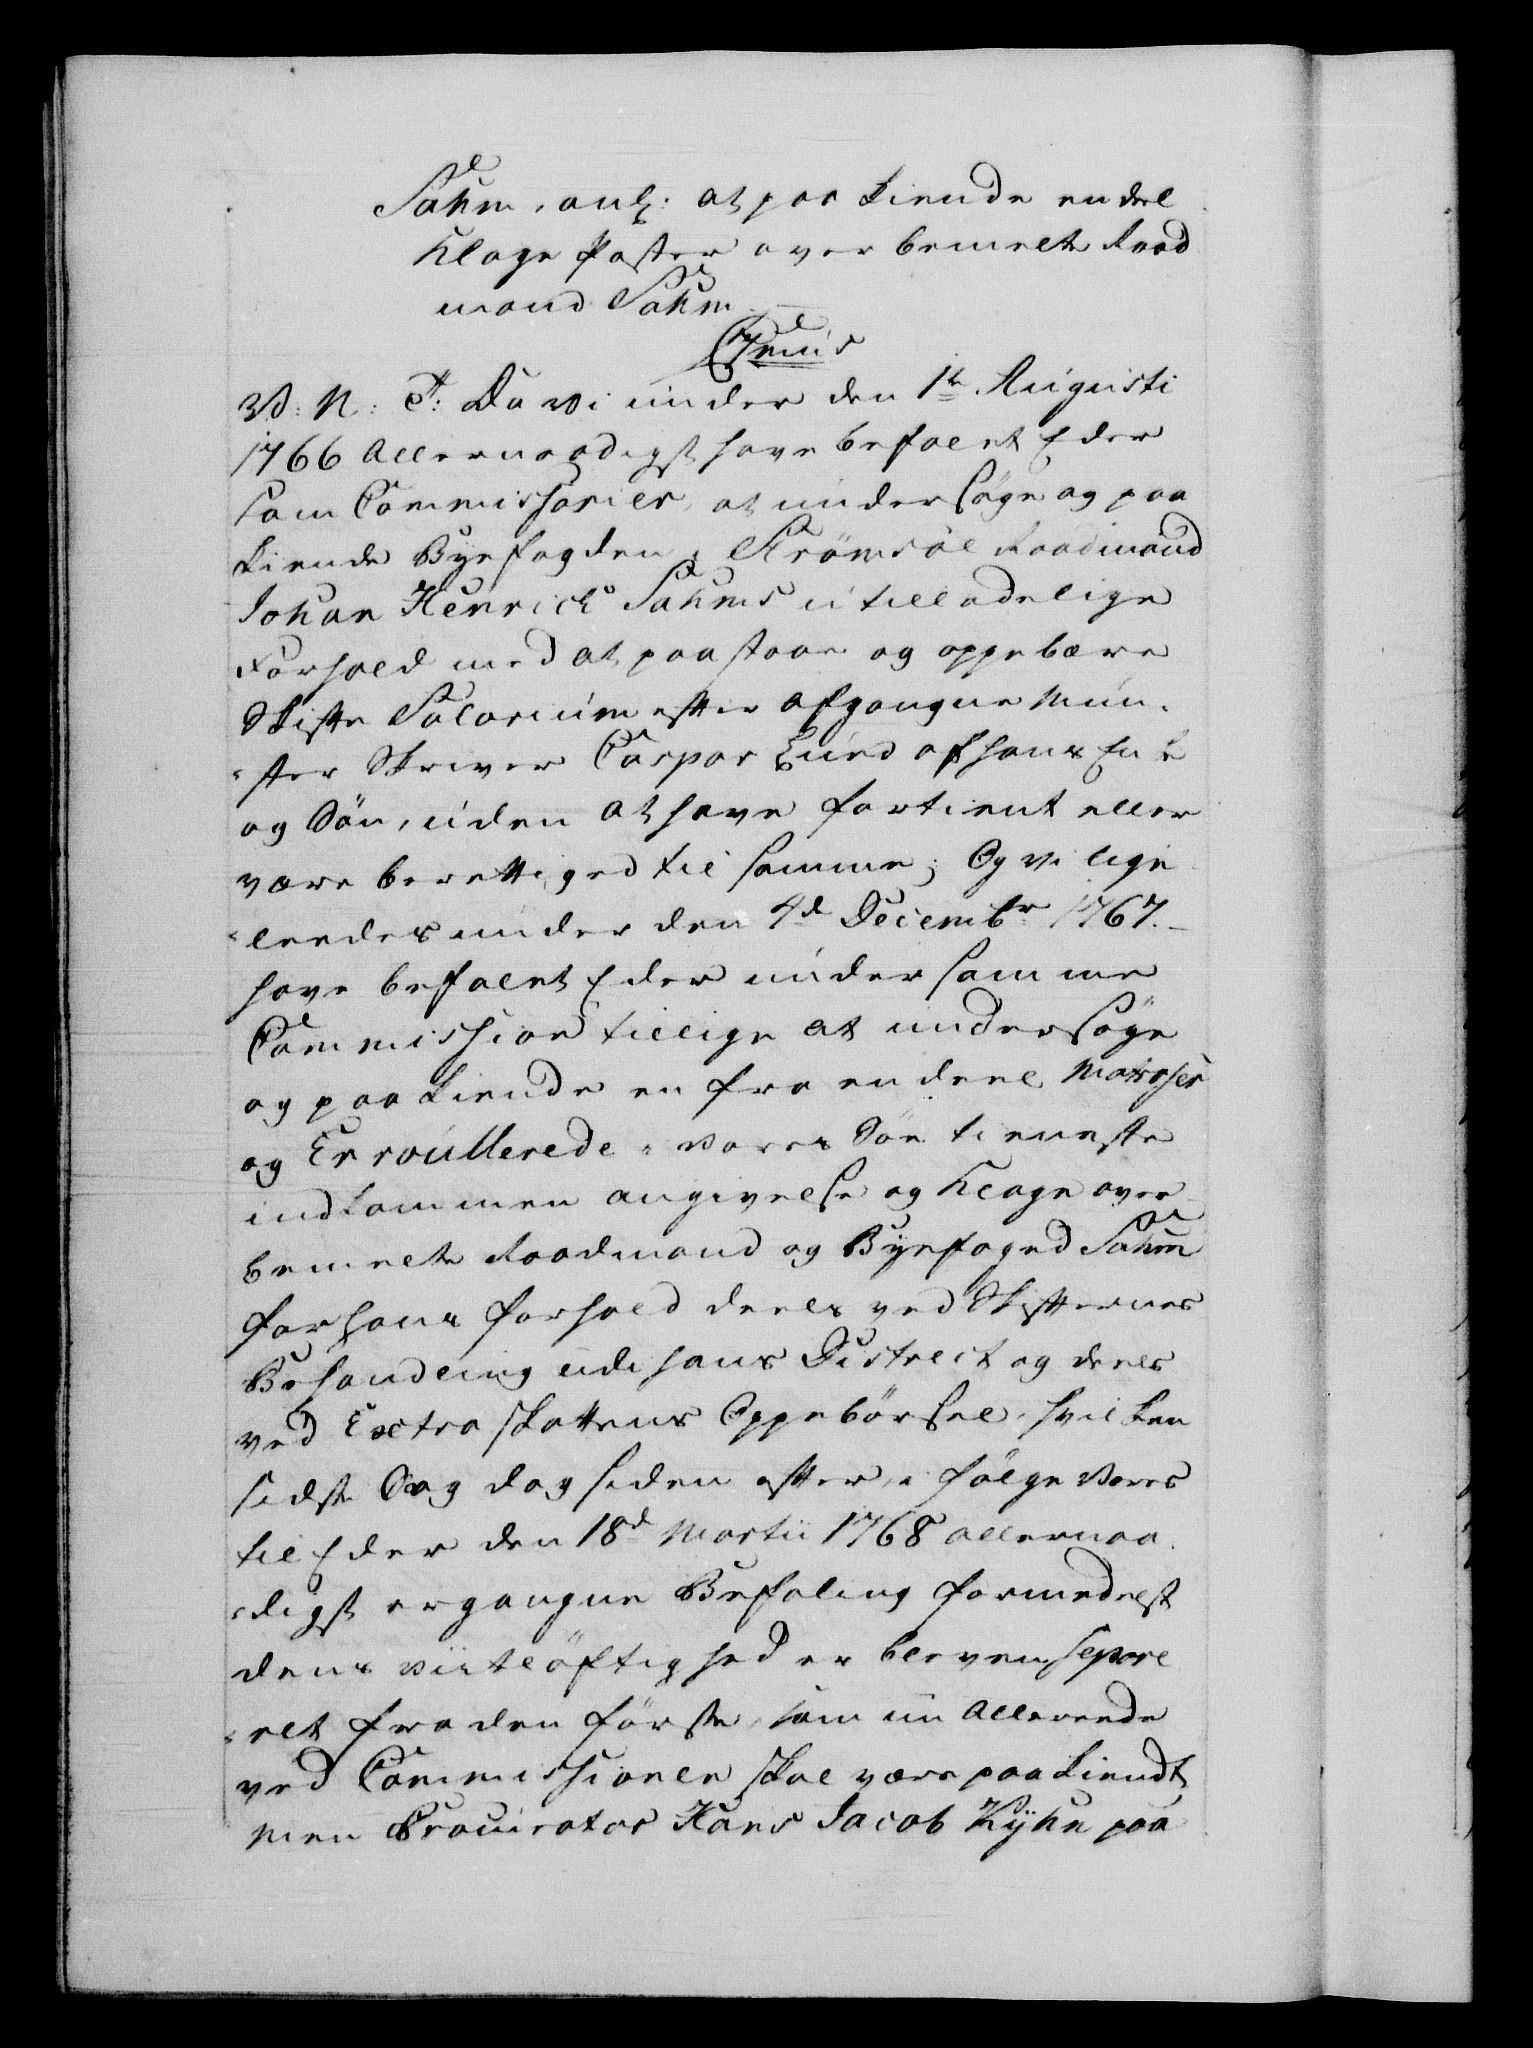 Sahm, anl: at paa kiende en deel
Klage Poster over bemelte Raad
mand Sahm
V: N: T: Da vi under den 1te Augusti
1766 Allernaadigst have befalet Eder
som Commissarier, at undersöge og paa
kiende Byefogden i Strömsöe Raadmand
Johan Henrich Sahms utilladelige
Forhold med at paastaae og oppebære
Skifte Salarium efter afgangne Mün-
ster Skriver Caspar Lund af hans Enke
og Sön, uden at have fortient eller
være berettiged til samme; Og vi lige
leedes under den 4de Decembr 1767.
have befalet Eder under samme
Commission tillige at undersöge
og paakiende en fra en deel Matroser
og Enroullerede i vores Söe tieneste
indkommen angivelse og Klage over
bemelte Raadmand og Byefoged Sahm
for hans forhold deels ved Skifternes
Behandling udi hans District og deels
ved Extra Skattens Oppebörsel, hvilken
sidste Sag dog siden efter, i fölge Vores
til Eder den 18de Martii 1768 allernaa
digst ergangne Befaling formedelst
dens vidtlöftighed er bleven separe
ret fra den förste, som nu Allerede
ved Commissionen skal være paakiendt,
men Procurator Hans Jacob Kyhn paa